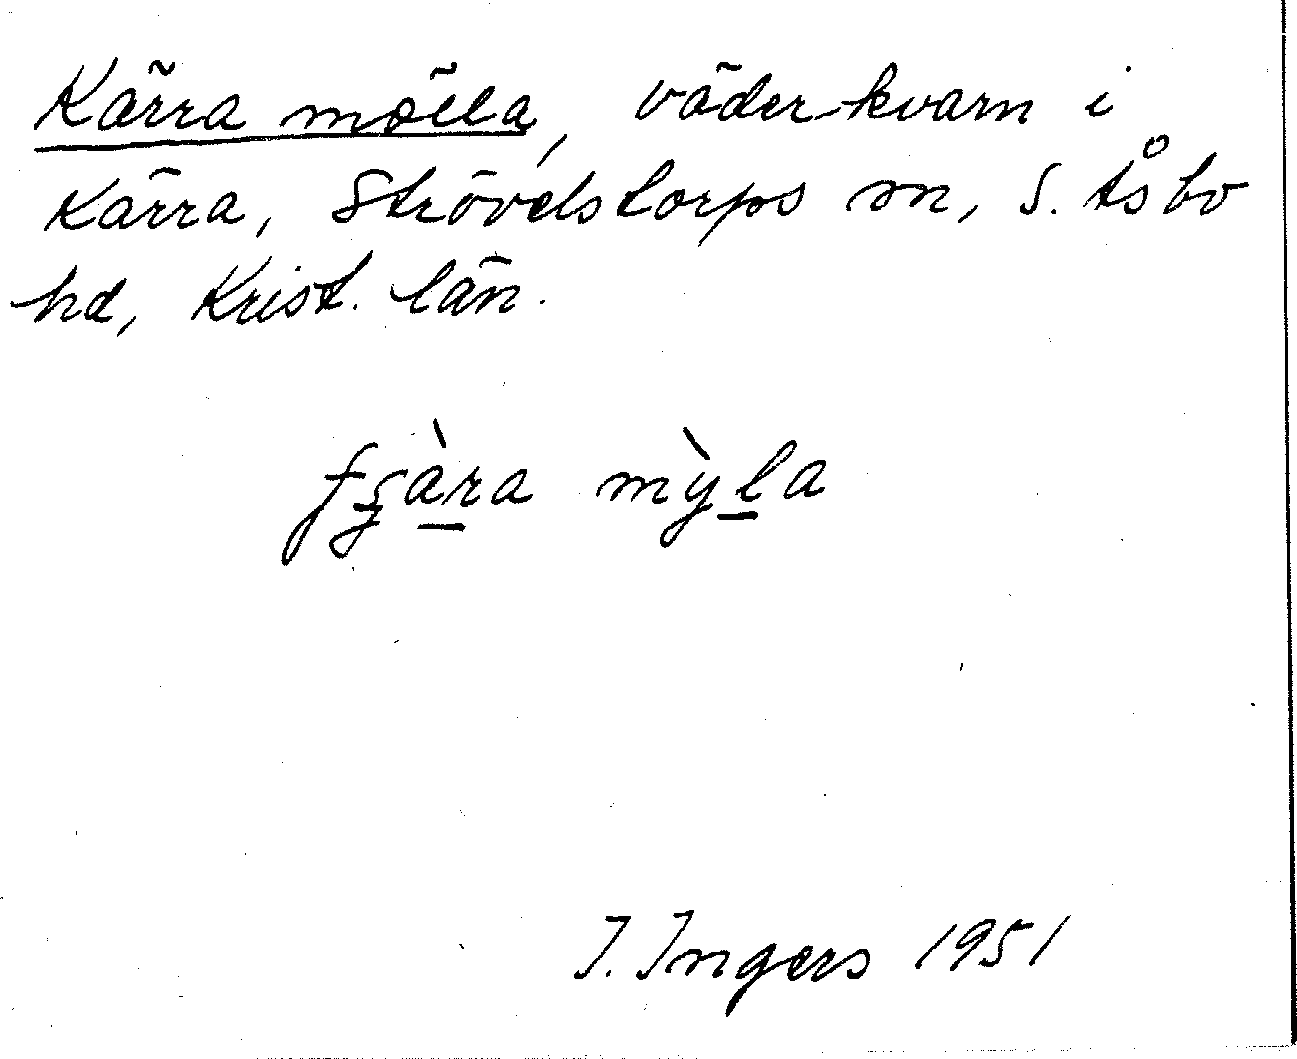 Kärra mölla, väderkvarn i
Kärra, Strövelstorps sn, S. Åsbo
hd, Krist. län.
fʒàra mỳla
I. Ingers 1951